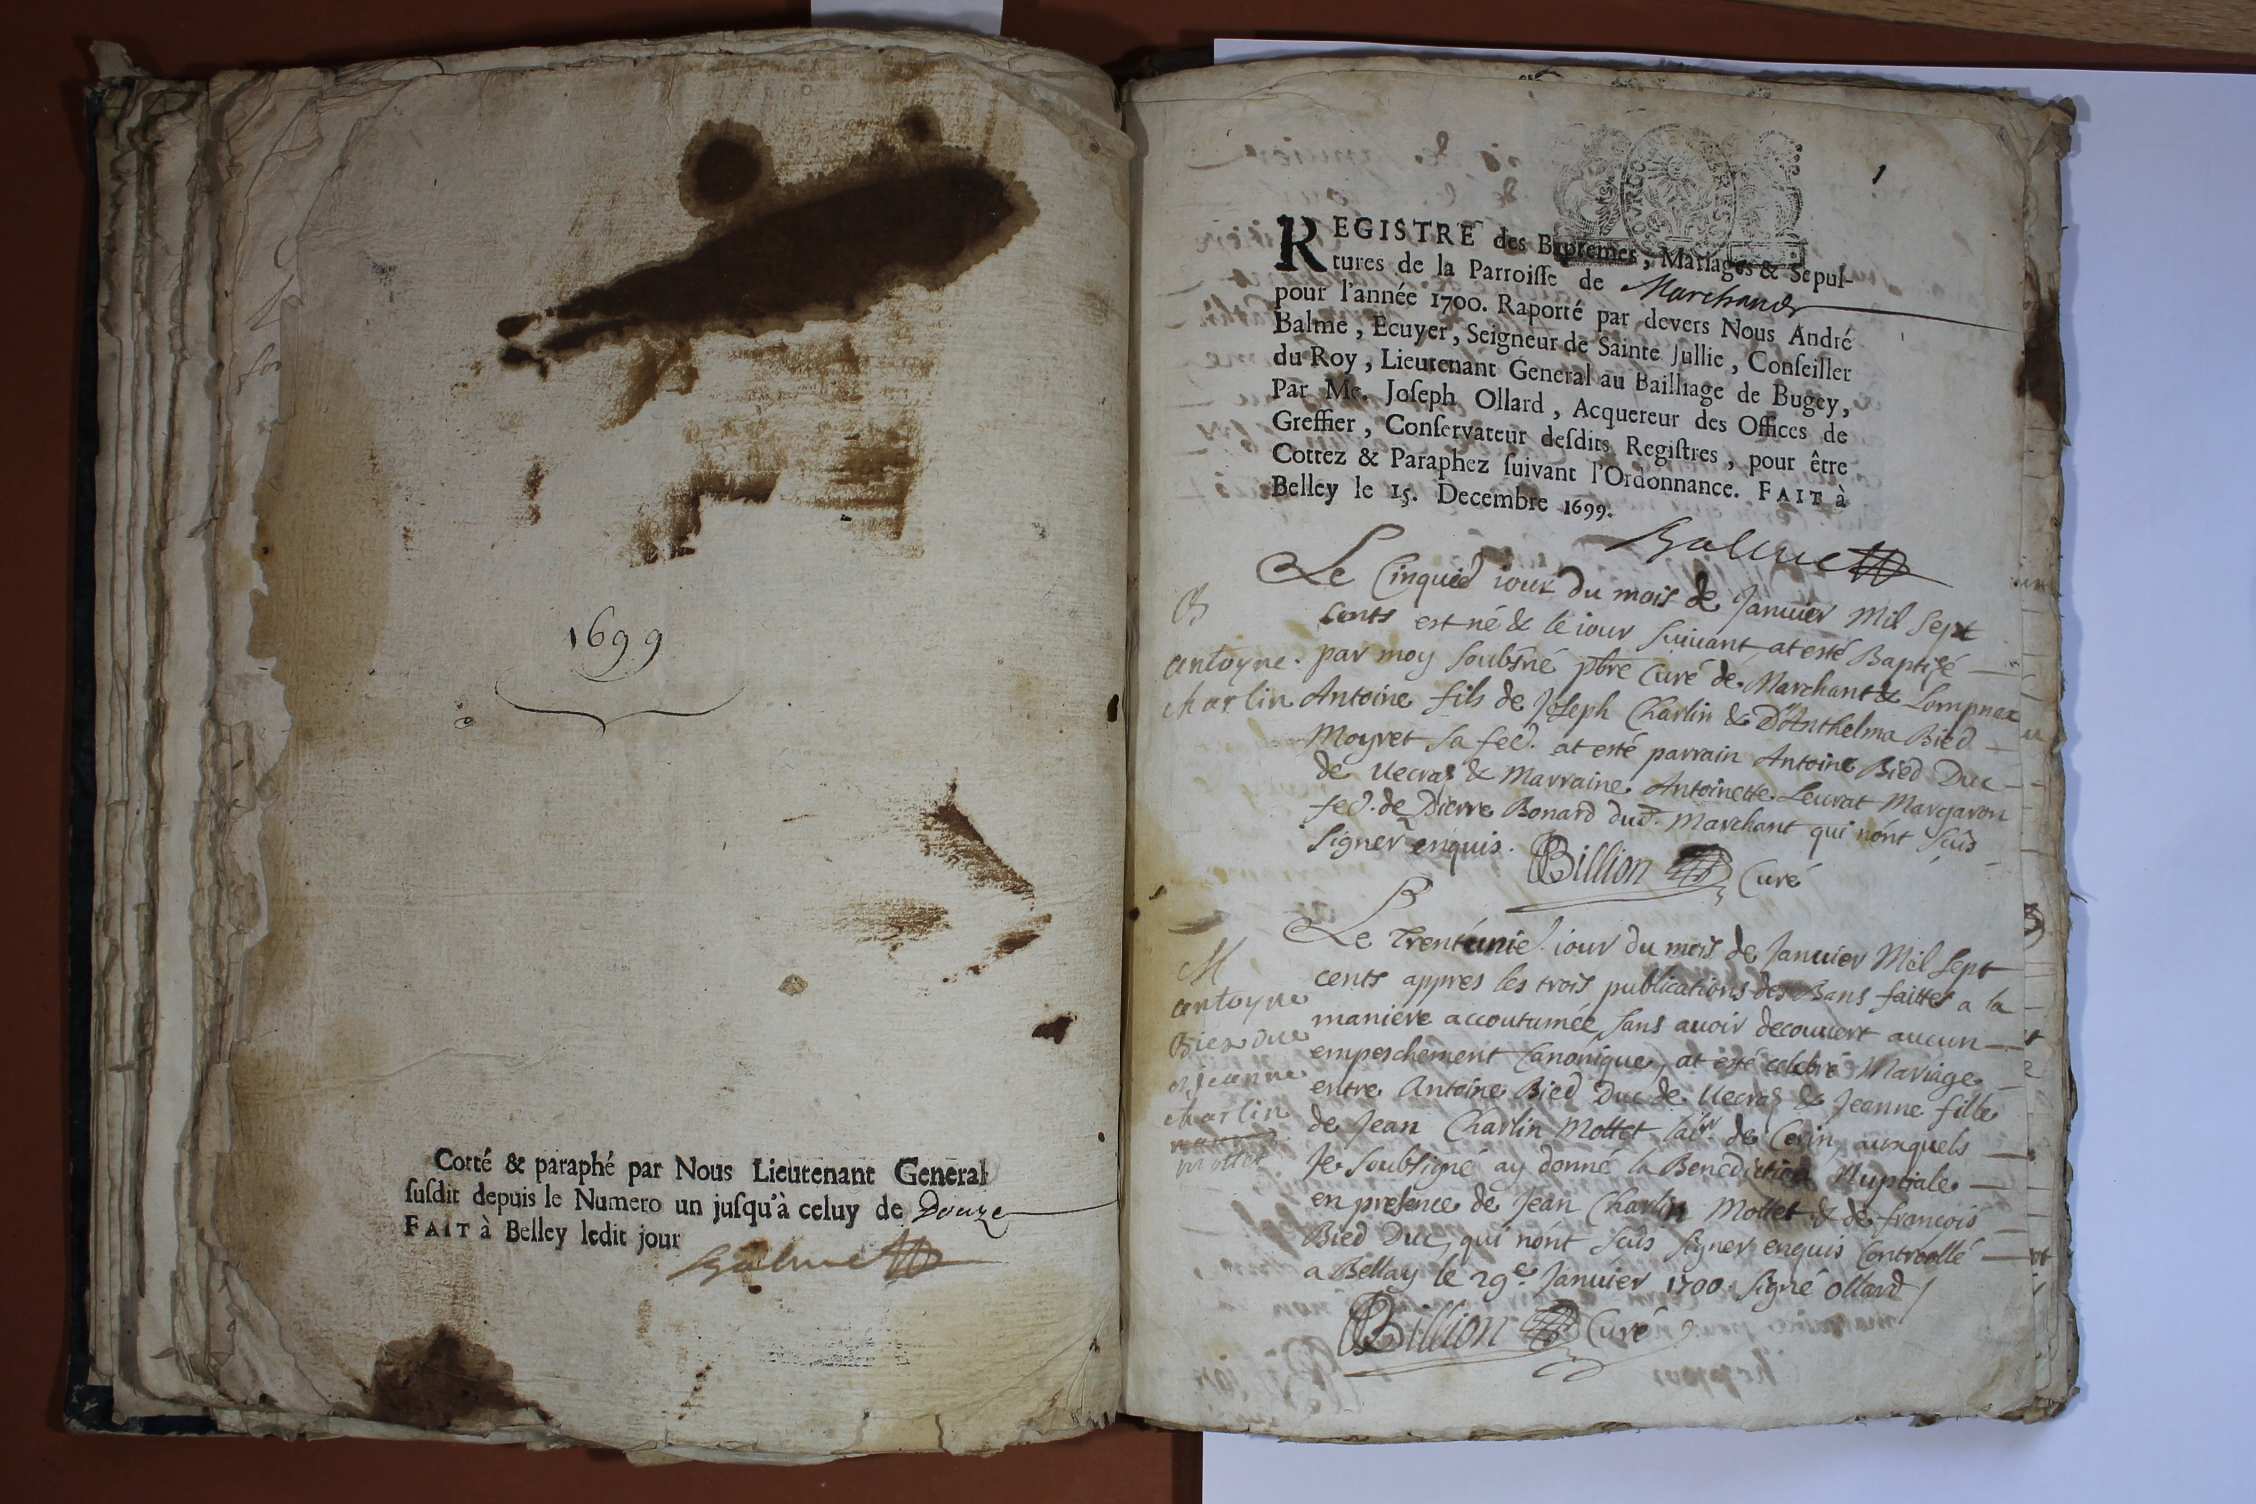 1699
Cotté & paraphé par Nous Lieutenant General
susdit depuis le Numero un jusqu'à celuy de Douze
FAIT à Belley ledit jour
Balme
1
REGISTRE des Baptemes, Mariages & Sepul-
tures de la Parroisse de Marchand
pour l'année 1700. Raporté par devers Nous André
Balme, Ecuyer, Seigneur de Sainte Jullie, Conseiller
du Roy, Lieutenant General au Bailliage de Bugey,
Par Me. Joseph Ollard, Acquereur des Offices de
Greffier, Conservateur desdits Registres, pour être
Cottez & Paraphez suivant l'Ordonnance. FAIT à
Belley le 15. Decembre 1699.
Balme
B
antoyne
charlin
Le Cinquie iour du mois de Januier Mil Sept
cents est né & le iour suiuant at esté Baptisé
par moy soubsné pbre Curé de Marchant & Lompnaz
Antoine fils de Joseph Charlin & D'Anthelma Bied
Moyret sa fee. at esté parrain Antoine Bied Duc
de Uecras & Marraine Antoinette Leurat Margaron
fee. de Pierre Bonard dud. Marchant qui n'ont sçus
signer enquis. Billion Curé
M
antoyne
Bied Duc
& jeanne
charlin
mottet
Le Trent'unie. iour du mois de Januier Mil Sept
cents appres les trois publications des Bans faittes a la
maniere accoutumée sans auoir decouuert aucun
empeschement Canonique, at esté celebré Mariage
entre Antoine Bied Duc de Uecras & Jeanne fille
de Jean Charlin Mottet labr. de Cerin, auxquels
Je soubsigné ay donné la Benediction Nuptiale
en presence de Jean Charlin Mottet & de françois
Bied Duc, qui n'ont sçus signer enquis Controollé
a Bellay le 29e. Januier 1700. signé Ollard
Billion Curé